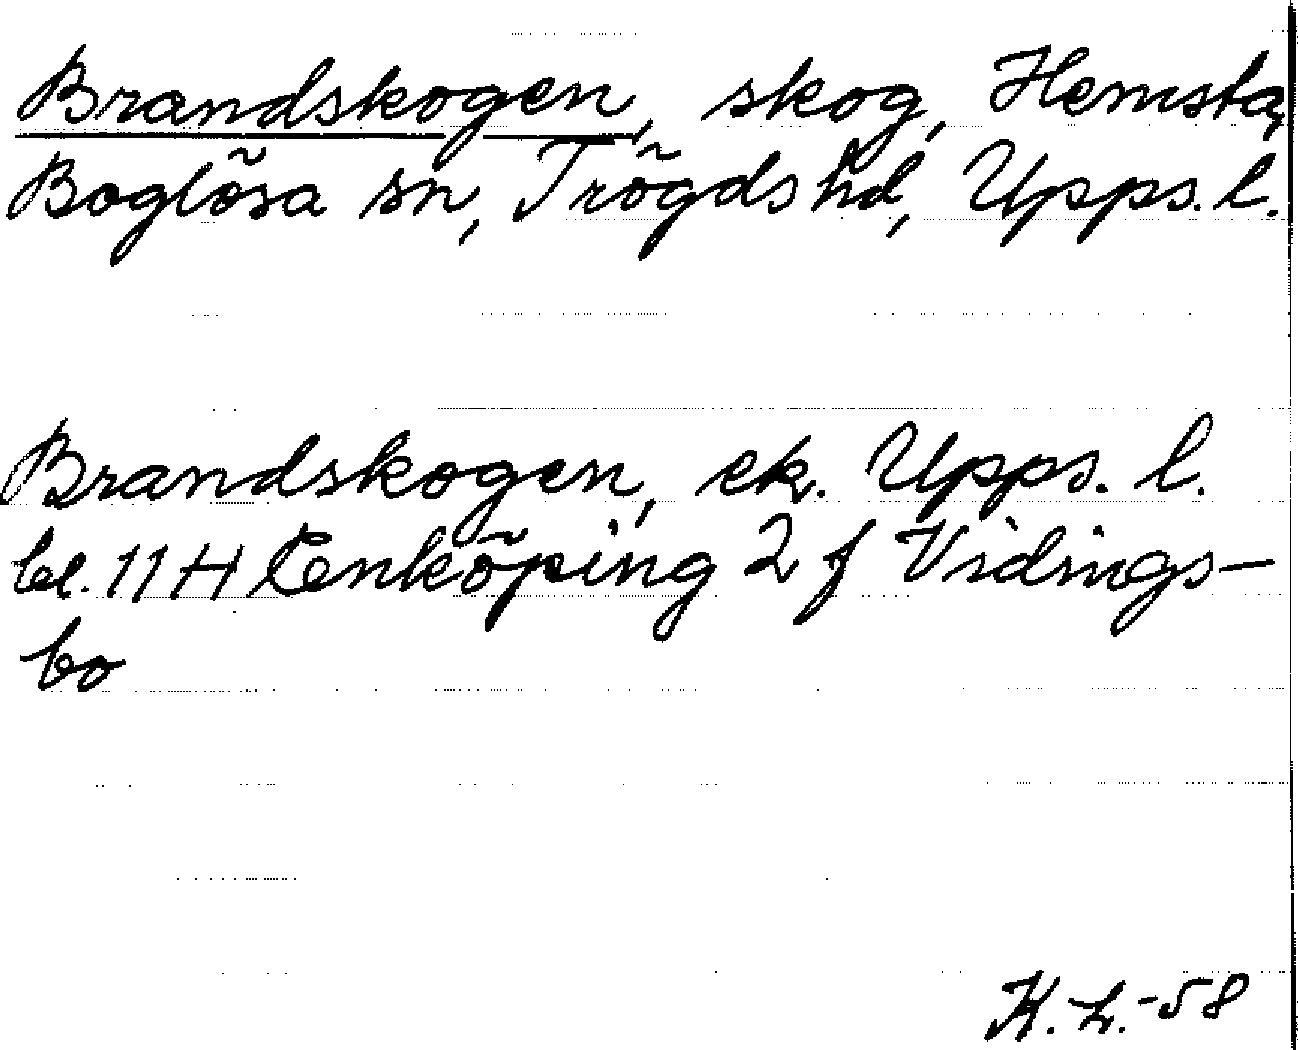 Brandskogen, skog, Hemsta,
Boglösa sn, Trögds hd, Upps. l.
Brandskogen, ek. Upps. l.
bl. 11 H Enköping 2 f Vidings-
bo
H. L. -58